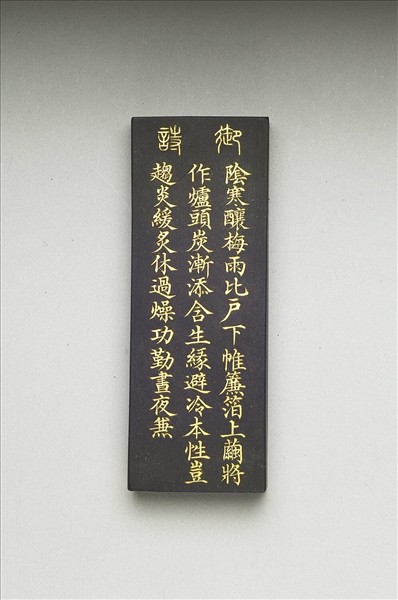 御詩
陰寒釀梅雨比戶下帷簾箔上繭將
作爐頭炭漸添含生緣避冷本性豈
趨炎緩炙休過燥功勤晝夜兼